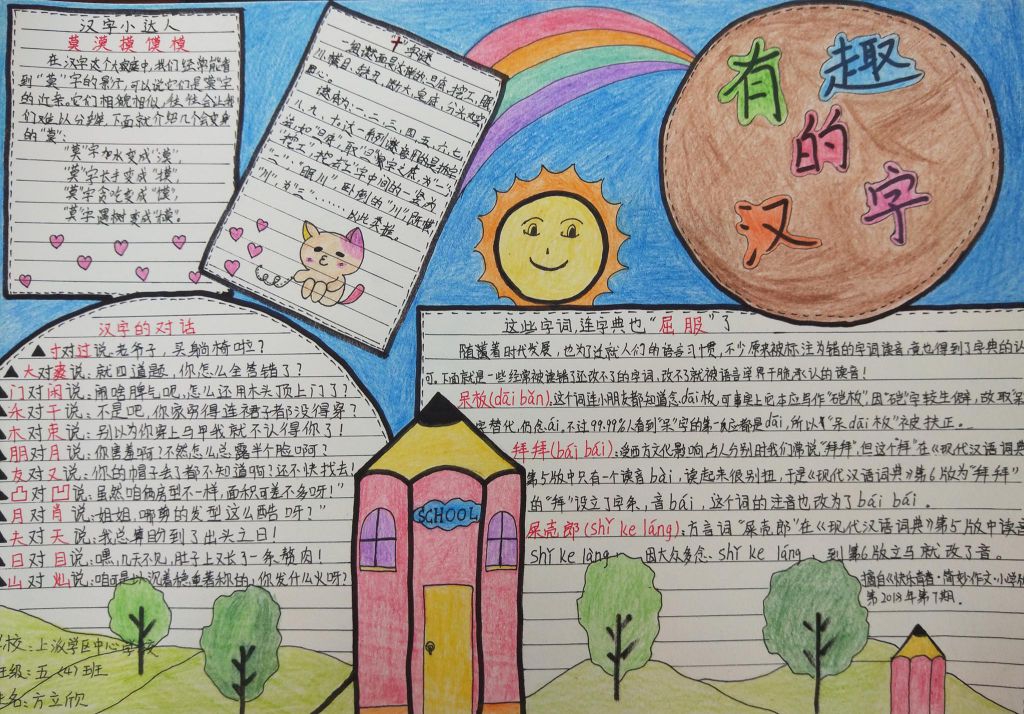 汉字小达人
莫漠摸馍模
在汉字这个大家庭中,我们经常能看
到“莫”字的影子,可以说它们是莫字
的近亲。它们相貌相似,往往会让我
们难以分辨,下面就介绍几个会变身
的“莫”:
“莫”字加水变成“漠”,
“莫”字长手变成“摸”,
“莫”字贪吃变成“馍”,
“莫”字遇树变成“模”。
“十”字谜
一组谜面是这样的:旦底,挖工,眼
川,横目,缺丑,断大,皂底,分头,丸空,
田心。
谜底为:一、二、三、四、五、六、七、
八、九、十。
“川”,为“三”……以此类推。
有趣的汉字
汉字的对话
▲寸对过说:老爷子,买躺椅啦?
▲大对爽说:就四道题,你怎么全答错了?
门对闲说:闹啥脾气吧,怎么还用木头顶上门了?
木对束说:别以为你穿上马甲我就不认得你了!
友对又说:你的帽子丢了都不知道啊?还不快找去!
凸对凹说:虽然咱俩房型不一样,面积可差不多呀!”
月对肖说:姐姐,哪剪的发型这么酷呀?”
夫对天说:我总算盼到了出头之日!
日对目说:嘿,几天不见,肚子上又长了一条赘肉!
山对灿说:咱可是以沉着稳重著称的,你发什么火呀?
这些字词,连字典也“屈服”了
随着时代发展,也为了迁就人们的语言习惯,不少原来被标注为错的字词读音,竟也得到了字典的认
可,下面就是一些经常被读错了还改不了的字词,改不了就被语言学界干脆承认的读音!
呆板(dāi bǎn):这个词连小朋友都知道念dāi板,可事实上它本应写作“硙板”,因“硙”字较生僻,故取“呆”
字替代,仍念ái。不过99.99%人看到“呆”字的第一反应都是dāi,所以《“呆dāi板”》被扶正。
拜拜(bái bái):受西方文化影响,与人分别时我们常说“拜拜”,但这个“拜”在《现代汉语词典》
第5版中只有一个读音bài,读起来很别扭,于是《现代汉语词典》第6版为“拜拜”
的“拜”设立了字条,音bái,这个词的注音也改为了bái bái。
屎壳郎(shǐ ke láng):方言词“屎壳郎”在《现代汉语词典》第5版中读音
shǐ ke làng,因大众多念shǐ ke láng,到第6版立马就改了音。
摘自《快乐青春·简妙作文·小学
第2018年第7期。
SCHOOL
学校:上派学区中心学校
班级:五(4)班
姓名:方立欣